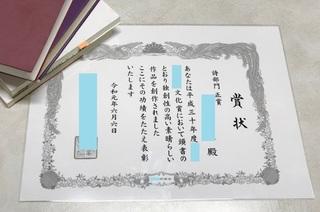 賞状
詩部門 正賞
殿
あなたは平成三十年度
文化賞において頭書の
とおり独創性の高い素晴らしい
作品を創作されました
ここにその功績をたたえ表彰
いたします
令和元年六月六日